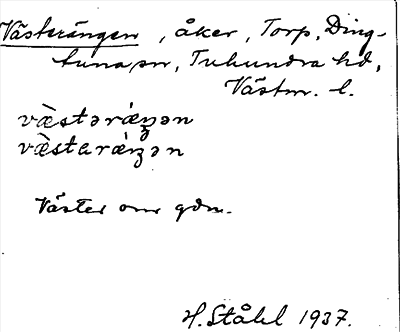 Västerängen, åker, Torp, Ding-
tuna sn, Tuhundra hd,
Västm. l.
vä̀stəräŋ́ən
vä̀staräŋ́ən
Väster om gdn.
H. Ståhl 1937.